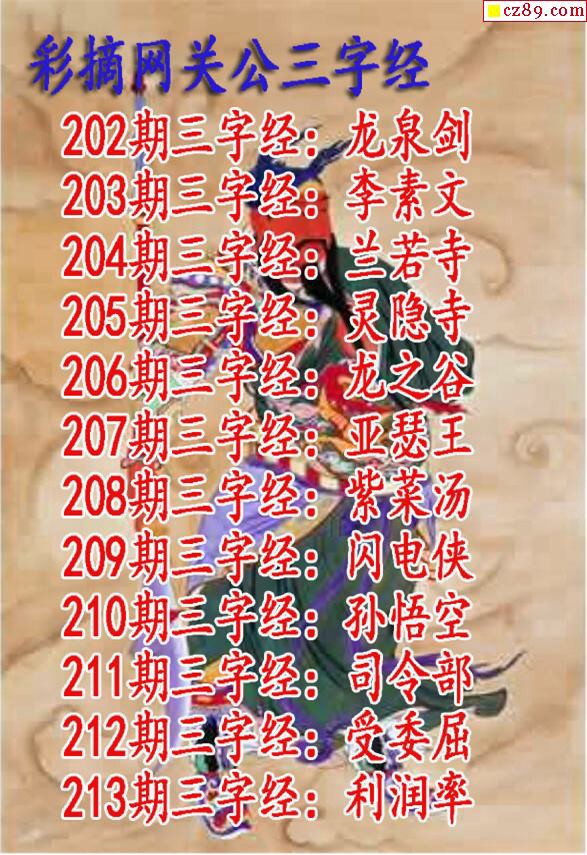 cz89.com
彩摘网关公三字经
202期三字经：龙泉剑
203期三字经：李素文
204期三字经：兰若寺
205期三字经：灵隐寺
206期三字经：龙之谷
207期三字经：亚瑟王
208期三字经：紫菜汤
209期三字经：闪电侠
210期三字经：孙悟空
211期三字经：司令部
212期三字经：受委屈
213期三字经：利润率